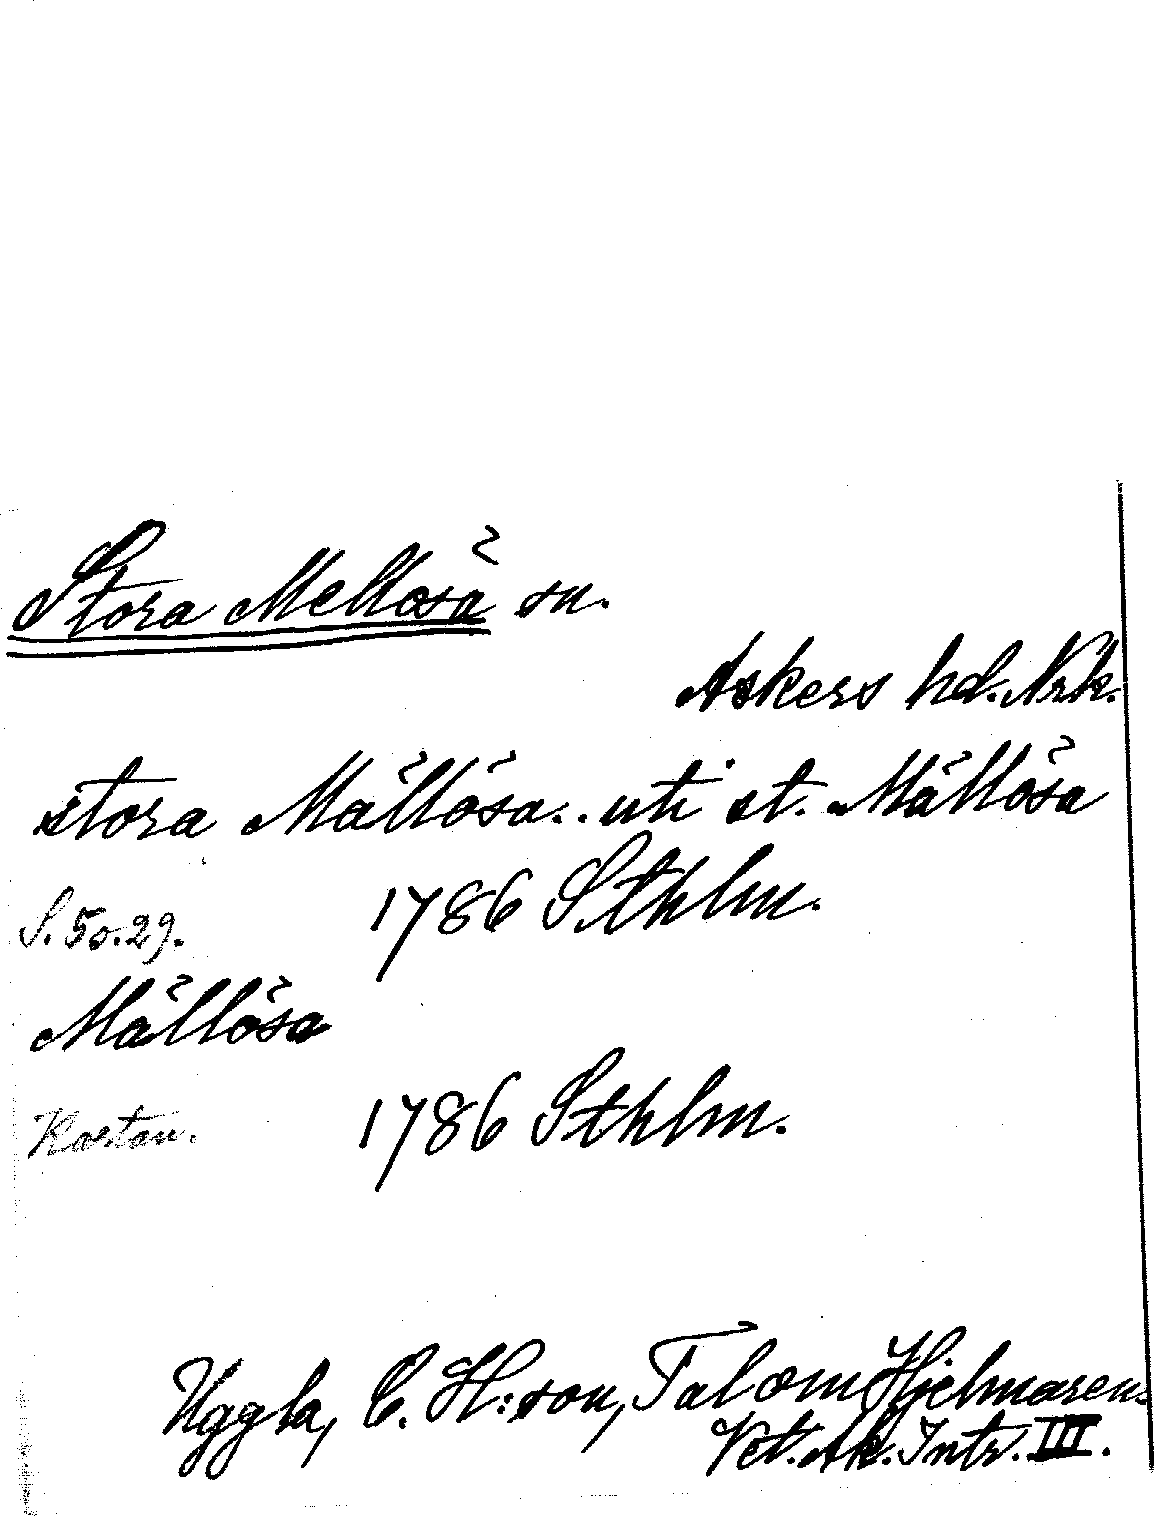 Stora Mellösa sn.
Askers hd. Nrk.
stora Mällösa.. uti st. Mällösa
S. 50. 29. 1786 Sthlm.
Mällösa
Kartan. 1786 Sthlm.
Uggla, C. H:son, Tal om Hjelmaren.
Vet. Ak. Intr. III.